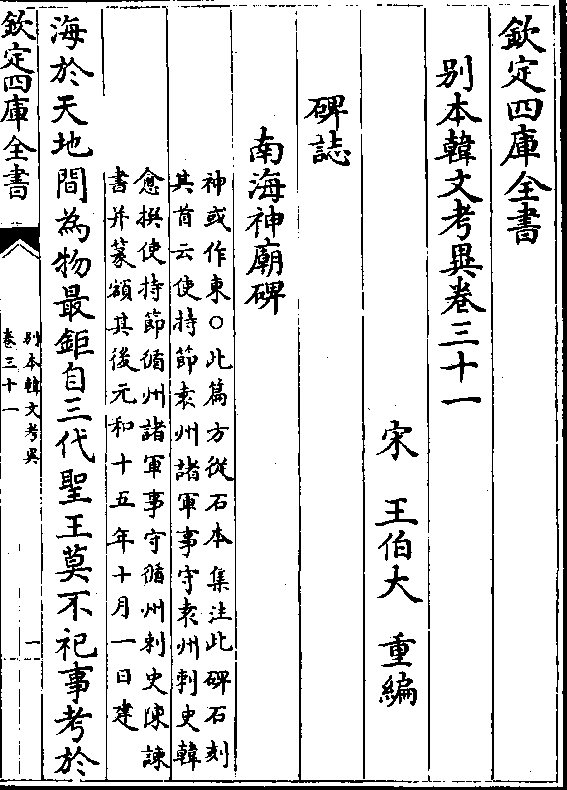 欽定四庫全書
别本韓文考異卷三十一
宋　王伯大　重編
碑誌
南海神廟碑
神或作東○此篇方從石本集注此碑石刻
其首云使持節袁州諸軍事守袁州刺史韓
愈撰使持節循州諸軍事守循州刺史陳諫
書并篆額其後元和十五年十月一日建
海於天地間為物最鉅自三代聖王莫不祀事考於
欽定四庫全書
别本韓文考異
卷三十一
一